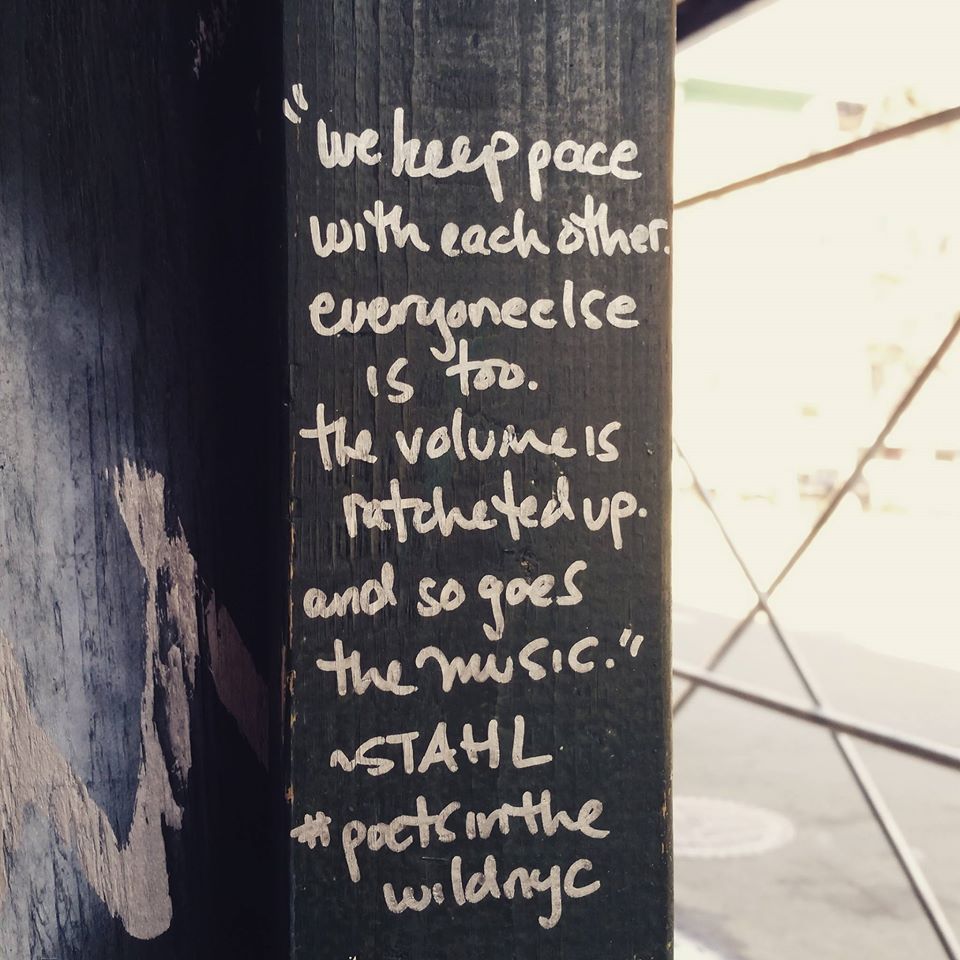 "we keep pace
with each other.
everyone else
is too.
the volume is
ratcheted up.
and so goes
the music."
~STAHL
#poetsinthe
wildnyc